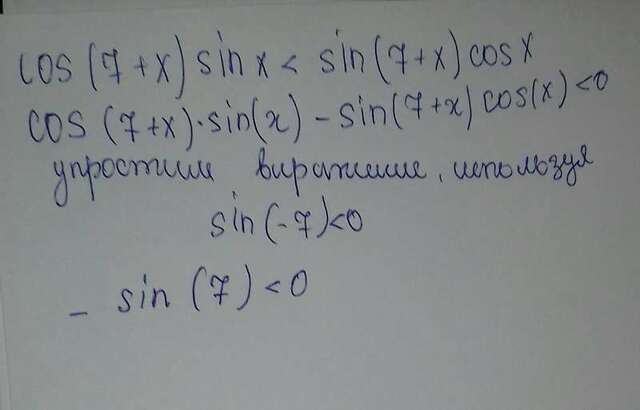 cos (7+x) sin x < sin (7+x) cos x
cos (7+x)·sin(x) - sin(7+x) cos(x) <0
упростим виражение, используя
sin(-7)<0
- sin (7) <0